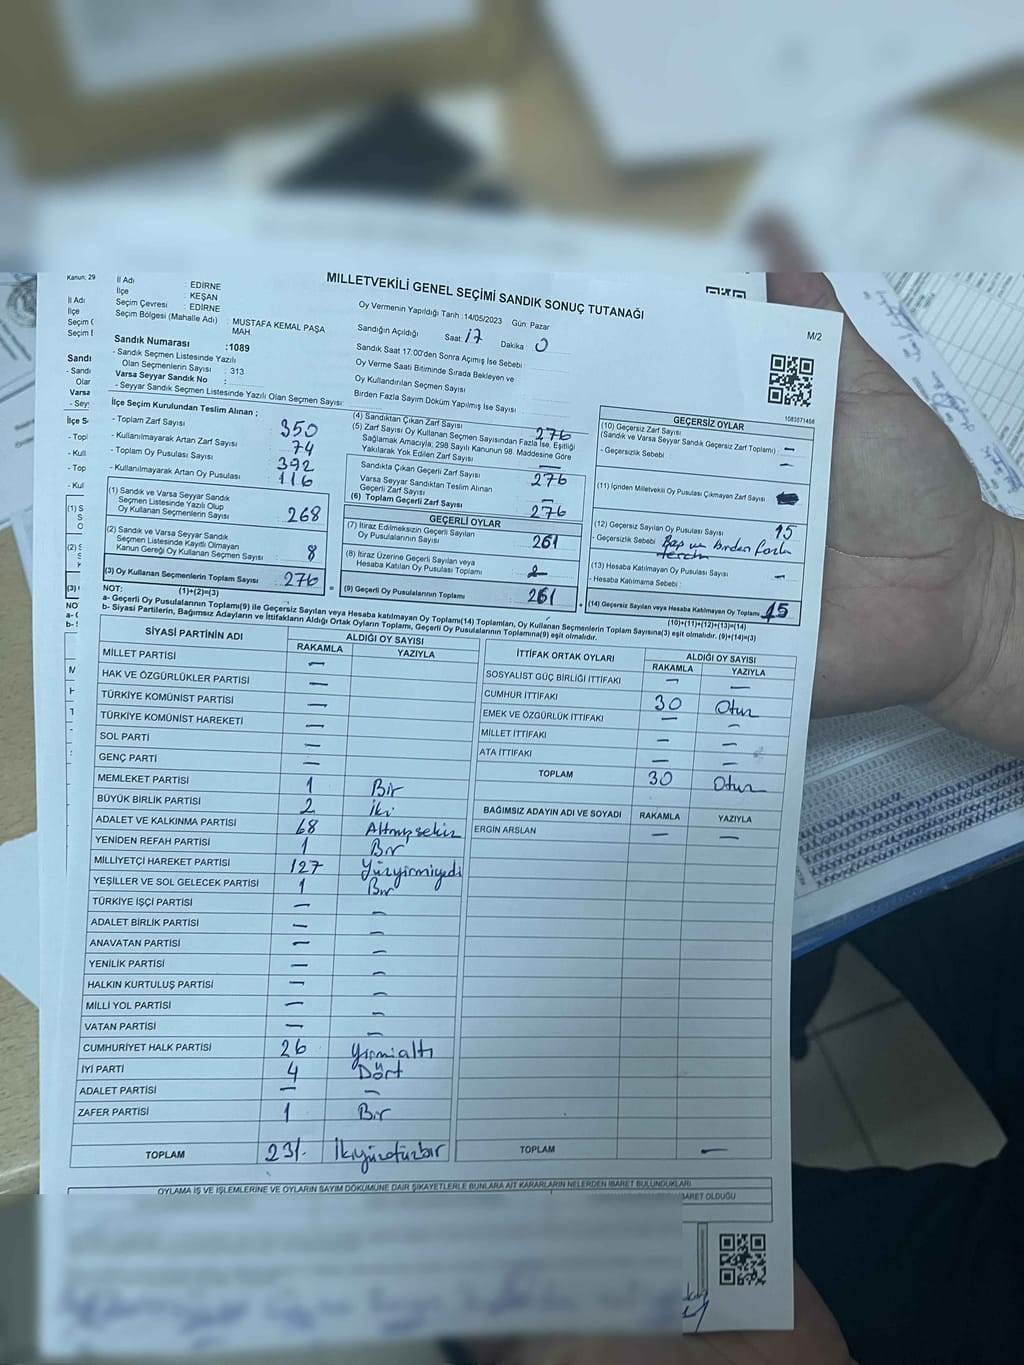 MİLLETVEKİLİ GENEL SEÇİMİ SANDIK SONUÇ TUTANAĞI
M/2
Kanun: 29
İl Adı : EDİRNE
İlçe : KEŞAN
Seçim Çevresi : EDİRNE
Seçim Bölgesi (Mahalle Adı) : MUSTAFA KEMAL PAŞA MAH.
Sandık Numarası :1089
- Sandık Seçmen Listesinde Yazılı
Olan Seçmenlerin Sayısı : 313
Varsa Seyyar Sandık No :
- Seyyar Sandık Seçmen Listesinde Yazılı Olan Seçmen Sayısı:
Oy Vermenin Yapıldığı Tarih :14/05/2023 Gün: Pazar
Sandığın Açıldığı Saat: 17 Dakika 0
Sandık Saat 17.00'den Sonra Açımış İse Sebebi :
Oy Verme Saati Bitiminde Sırada Bekleyen ve
Oy Kullandırılan Seçmen Sayısı
Birden Fazla Sayım Döküm Yapılmış İse Sayısı
1083571458
İlçe Seçim Kurulundan Teslim Alınan ;
- Toplam Zarf Sayısı 350
- Kullanılmayarak Artan Zarf Sayısı 74
- Toplam Oy Pusulası Sayısı 392
- Kullanılmayarak Artan Oy Pusulası 116
(1) Sandık ve Varsa Seyyar Sandık
Seçmen Listesinde Yazılı Olup
Oy Kullanan Seçmenlerin Sayısı 268
(2) Sandık ve Varsa Seyyar Sandık
Seçmen Listesinde Kayıtlı Olmayan
Kanun Gereği Oy Kullanan Seçmen Sayısı 8
(3) Oy Kullanan Seçmenlerin Toplam Sayısı 276
(1)+(2)=(3)
(4) Sandıktan Çıkan Zarf Sayısı 276
(5) Zarf Sayısı Oy Kullanan Seçmen Sayısından Fazla İse, Eşitliği
Sağlamak Amacıyla; 298 Sayılı Kanunun 98. Maddesine Göre
Yakılarak Yok Edilen Zarf Sayısı —
Sandıkta Çıkan Geçerli Zarf Sayısı 276
Varsa Seyyar Sandıktan Teslim Alınan
Geçerli Zarf Sayısı —
(6) Toplam Geçerli Zarf Sayısı 276
GEÇERLİ OYLAR
(7) İtiraz Edilmeksizin Geçerli Sayılan
Oy Pusulalarının Sayısı 261
(8) İtiraz Üzerine Geçerli Sayılan veya
Hesaba Katılan Oy Pusulası Toplamı
(9) Geçerli Oy Pusulalarının Toplamı 261
GEÇERSİZ OYLAR
(10) Geçersiz Zarf Sayısı
(Sandık ve Varsa Seyyar Sandık Geçersiz Zarf Toplamı) : —
- Geçersizlik Sebebi : —
(11) İçinden Milletvekili Oy Pusulası Çıkmayan Zarf Sayısı
(12) Geçersiz Sayılan Oy Pusulası Sayısı : 15
- Geçersizlik Sebebi : birden fazla tercih
(13) Hesaba Katılmayan Oy Pusulası Sayısı : —
- Hesaba Katılmama Sebebi :
(14) Geçersiz Sayılan veya Hesaba Katılmayan Oy Toplamı 15
(10)+(11)+(12)+(13)=(14)
NOT:
a- Geçerli Oy Pusulalarının Toplamı(9) ile Geçersiz Sayılan veya Hesaba katılmayan Oy Toplamı(14) Toplamları, Oy Kullanan Seçmenlerin Toplam Sayısına(3) eşit olmalıdır. (9)+(14)=(3)
b- Siyasi Partilerin, Bağımsız Adayların ve İttifakların Aldığı Ortak Oyların Toplamı, Geçerli Oy Pusulalarının Toplamına(9) eşit olmalıdır.
SİYASİ PARTİNİN ADI ALDIĞI OY SAYISI
RAKAMLA YAZIYLA
MİLLET PARTİSİ —
HAK VE ÖZGÜRLÜKLER PARTİSİ —
TÜRKİYE KOMÜNİST PARTİSİ —
TÜRKİYE KOMÜNİST HAREKETİ —
SOL PARTİ —
GENÇ PARTİ —
MEMLEKET PARTİSİ 1 Bir
BÜYÜK BİRLİK PARTİSİ 2 İki
ADALET VE KALKINMA PARTİSİ 68 Altmışsekiz
YENİDEN REFAH PARTİSİ 1 Bir
MİLLİYETÇİ HAREKET PARTİSİ 127 Yüzyirmiyedi
YEŞİLLER VE SOL GELECEK PARTİSİ 1 Bir
TÜRKİYE İŞÇİ PARTİSİ — —
ADALET BİRLİK PARTİSİ — —
ANAVATAN PARTİSİ — —
YENİLİK PARTİSİ — —
HALKIN KURTULUŞ PARTİSİ — —
MİLLİ YOL PARTİSİ — —
VATAN PARTİSİ — —
CUMHURİYET HALK PARTİSİ 26 Yirmialtı
İYİ PARTİ 4 Dört
ADALET PARTİSİ — —
ZAFER PARTİSİ 1 Bir
TOPLAM 231. İkiyüzotuzbir
İTTİFAK ORTAK OYLARI ALDIĞI OY SAYISI
RAKAMLA YAZIYLA
SOSYALİST GÜÇ BİRLİĞİ İTTİFAKI — —
CUMHUR İTTİFAKI 30 Otuz
EMEK VE ÖZGÜRLÜK İTTİFAKI — —
MİLLET İTTİFAKI — —
ATA İTTİFAKI — —
TOPLAM 30 Otuz
BAĞIMSIZ ADAYIN ADI VE SOYADI RAKAMLA YAZIYLA
ERGİN ARSLAN — —
TOPLAM —
OYLAMA İŞ VE İŞLEMLERİNE VE OYLARIN SAYIM DÖKÜMÜNE DAİR ŞİKAYETLERLE BUNLARA AİT KARARLARIN NELERDEN İBARET BULUNDUKLARI
BARET OLDUĞU